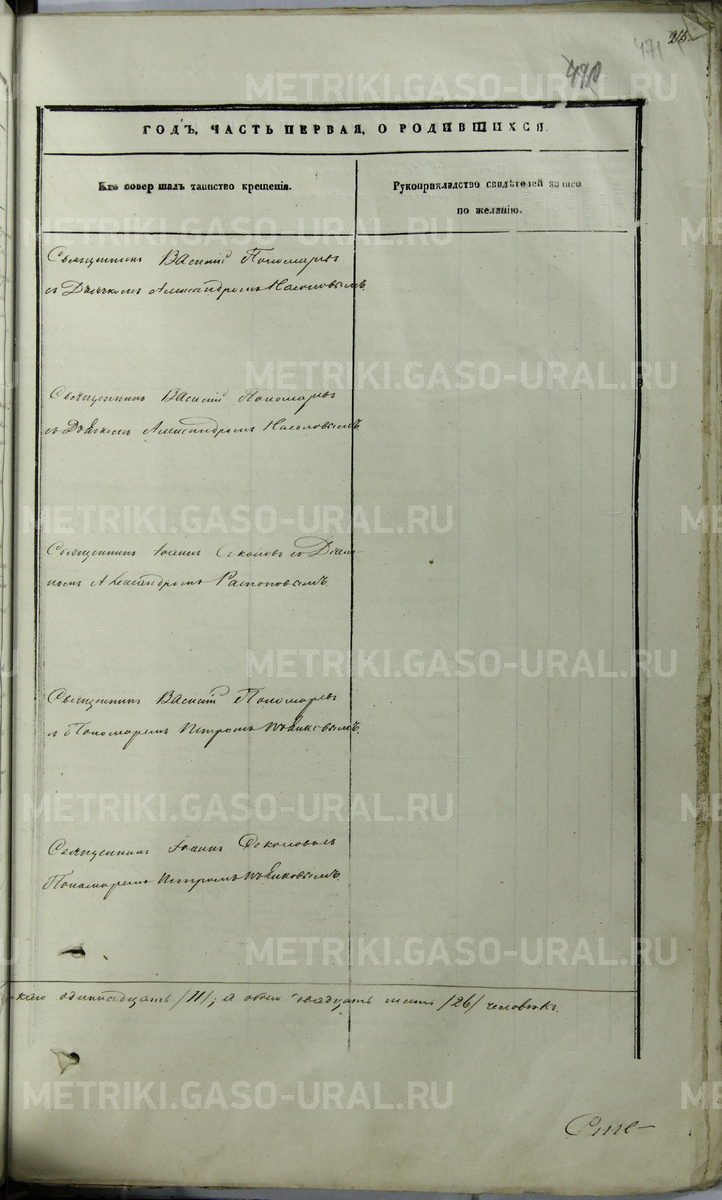 213.
471
490
ГОДЪ, ЧАСТЬ ПЕРВАЯ, О РОДИВШИХСЯ.
Кто совершалъ таинство крещенія.
Рукоприкладство свидѣтелей записи
по желанію.
Священникъ Василій Пономаревъ
съ Дьячкомъ Александромъ Насоновымъ.
Священникъ Василій Пономаревъ
съ Дьячкомъ Александромъ Насоновымъ.
Священникъ Іоаннъ Соколовъ съ Діако-
номъ Александромъ
Священникъ Василій Пономаревъ
съ Пономаремъ Петромъ
Священникъ Іоаннъ Соколовъ съ
Пономаремъ Петромъ
каго одиннадцать /11/; а обоего двадцать шесть /26/ человѣкъ.
METRIKI.GASO-URAL.RU